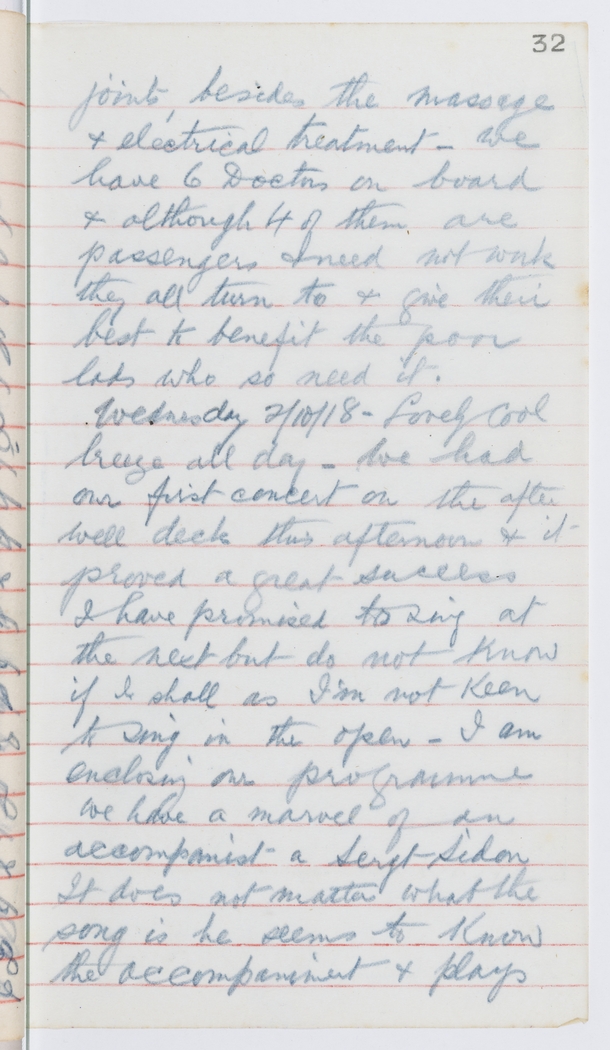 32
joints, besides the massage
& electrical treatment - we
have 6 Doctors on board
& although 4 of them are
passengers & need not work
they all turn to & give their
best to benefit the poor
lads who so need it.
Wednesday 2/10/18 - Lovely cool
breeze all day - We had
our first concert on the after
well deck this afternoon & it
proved a great success
I have promised to sing at
the next but do not know
if I shall as I'm not keen
to sing in the open - I am
enclosing our programme
we have a marvel of an
accompanist - a Sergt Sidon
It does not matter what the
song is he seems to know
the accompaniment & plays